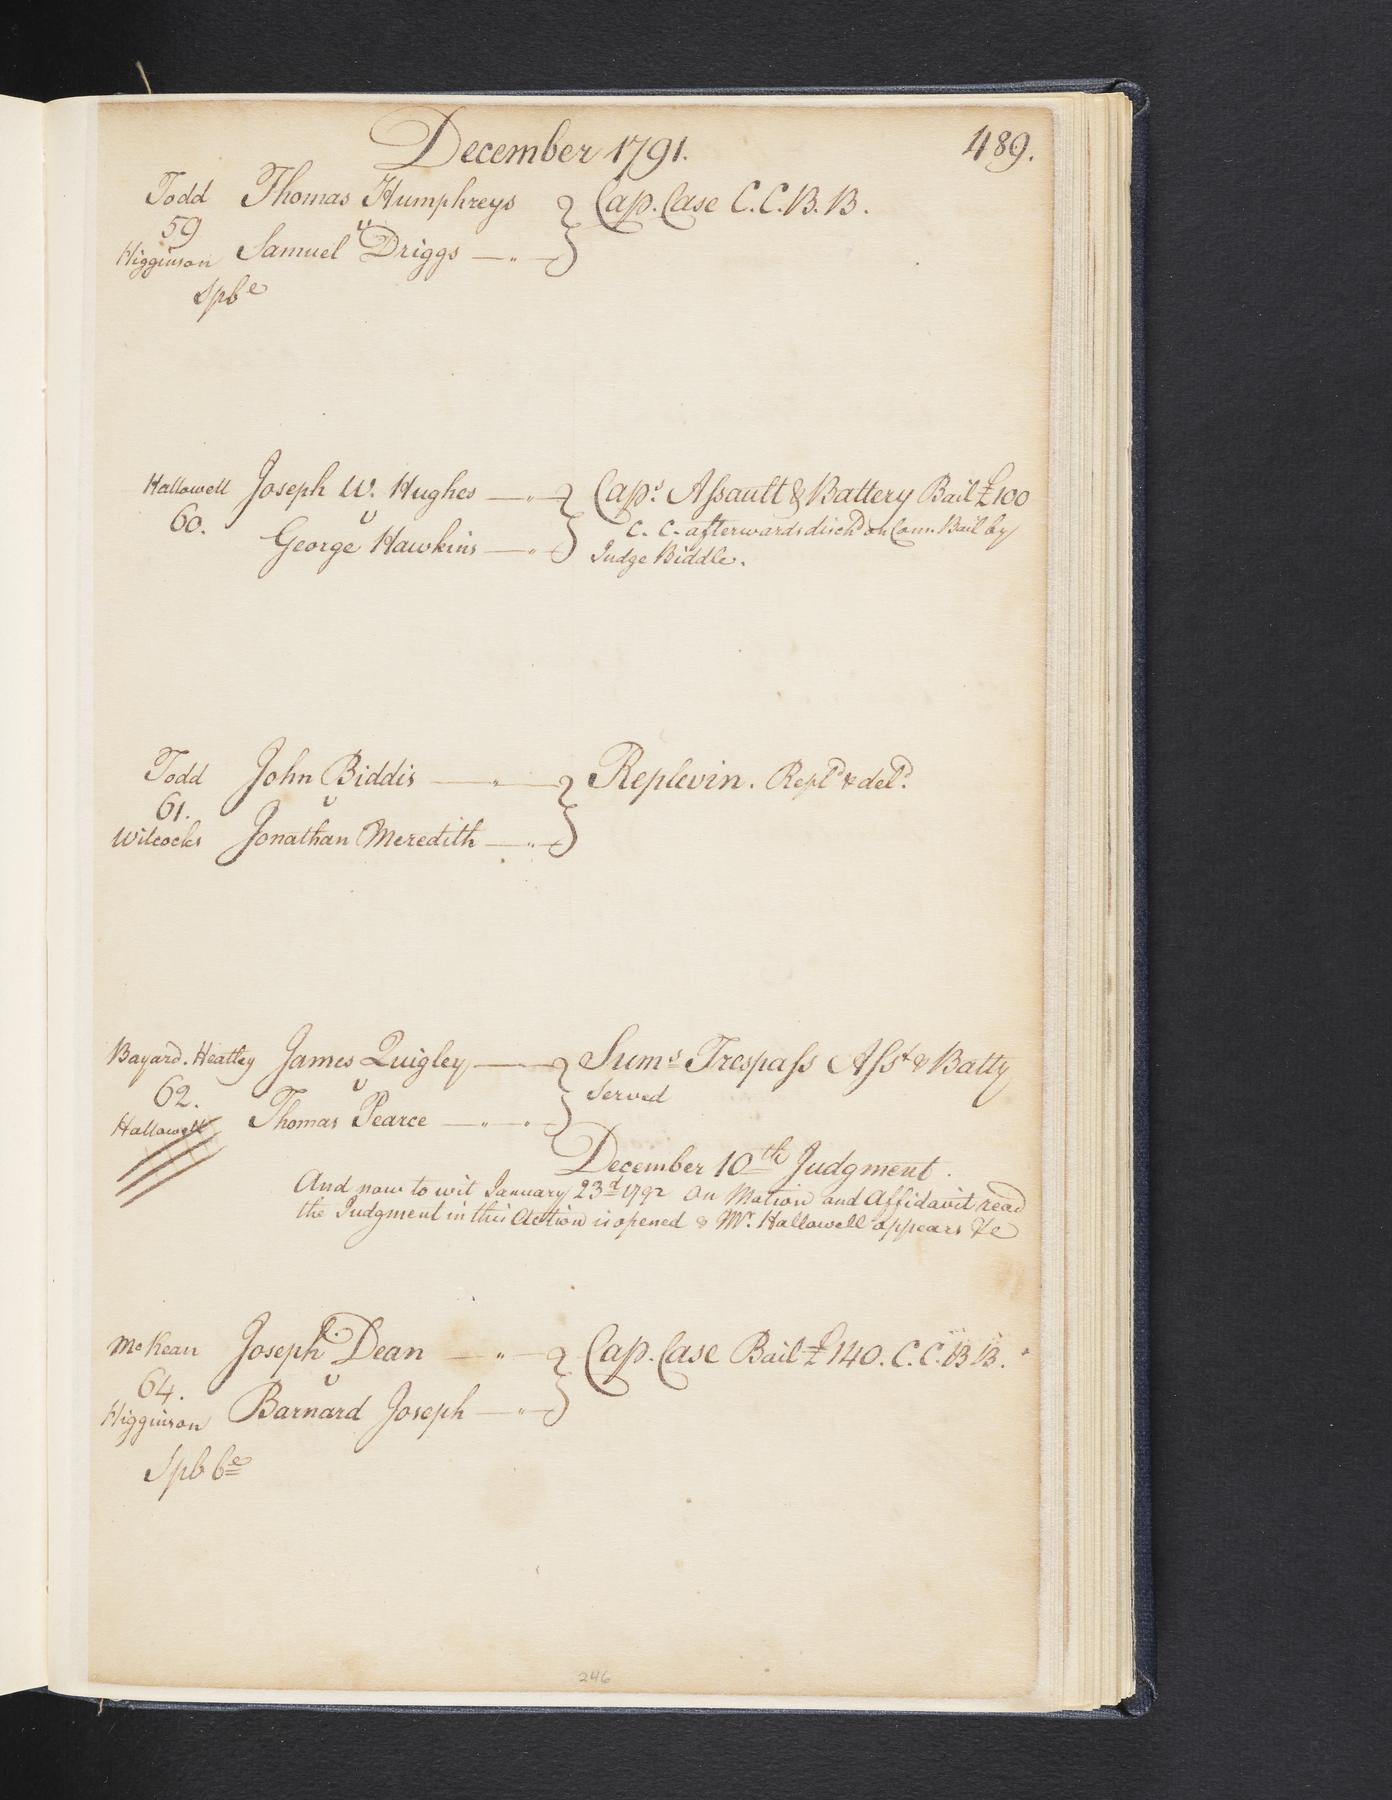 December 1791. 489.
Todd Thomas Humphreys Cap. Case C.C.B.B.
59 v
Higginson Samuel Driggs
Spb e
Hallowell Joseph W. Hughes Caps. Assault & Battery Bail £100
60. v C. C. afterwards disch'd on Com. Bail by
George Hawkins Judge Biddle.
Todd John Biddis Replevin. Repld & deld.
61. v
Wilcocks Jonathan Meredith
Bayard. Heatley James Quigley Sums Trespass Asst & Batty
62. v Served
Hallowell Thomas Pearce
December 10th Judgment.
And now to wit January 23d 1792 On Motion and Affidavit read
the Judgment in this Action is opened & Mr. Hallowell appears &c
McKean Joseph Dean Cap. Case Bail £140. C.C.B.B.
64. v
Higginson Barnard Joseph
Spb be
246